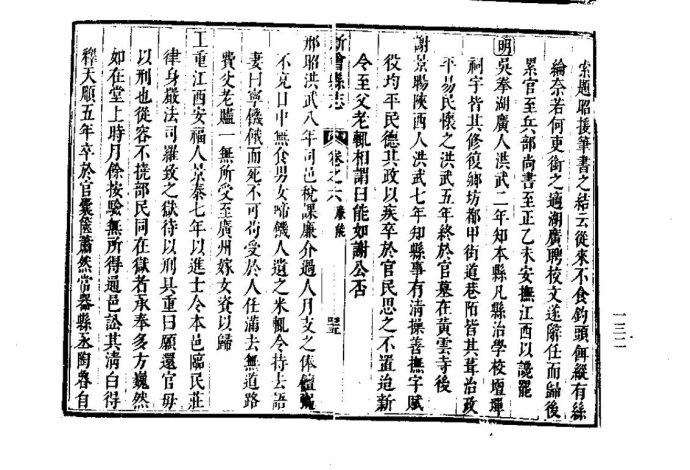 索題昭援筆書之結云從來不食鈎頭餌縱有絲
綸奈若何吏銜之適湖廣聘校文遂辭任而歸後
累官至兵部尚書至正乙未安撫江西以讒罷
明吳奉湖廣人洪武二年知本縣凡縣治學校壇墠
祠宇皆其修復鄉坊都甲街道巷陌皆其葺治政
平易民懷之洪武五年終於官墓在黃雲寺後
謝景暘陝西人洪武七年知縣事有清操善撫字賦
役均平民德其政以疾卒於官民思之不置迨新
令至父老輒相謂曰能如謝公否
新會縣志 卷之六
邢昭洪武八年司邑稅課廉介過人月支之俸
不克日中無食男女啼饑人遺之米輒令持去語
妻曰寧饑餓而死不可苟受於人任滿去無道路
費父老贐一無所受至廣州嫁女資以歸
丁重江西安福人景泰七年以進士令本邑臨民莊
律身嚴法司羅致之獄待以刑具重曰願還官毋
以刑也從容不撓部民同在獄者承奉多方巍然
如在堂上時月餘按驗無所得遍邑訟其清白得
釋天順五年卒於官囊篋蕭然常器縣丞陶魯自
一三二